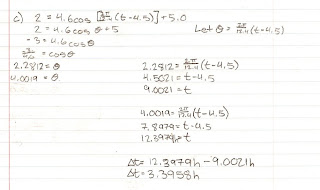 c) 2 = 4.6cos [2π/12.4 (t-4.5)] + 5.0
2 = 4.6cosθ + 5
Let θ = 2π/12.4 (t-4.5)
-3 = 4.6cosθ
-3/4.6 = cosθ
2.2812 = θ
4.0019 = θ
2.2812 = 2π/12.4 (t-4.5)
4.5021 = t-4.5
9.0021 = t
4.0019 = 2π/12.4 (t-4.5)
7.8979 = t-4.5
12.3979h = t
Δt = 12.3979h - 9.0021h
Δt = 3.3958h